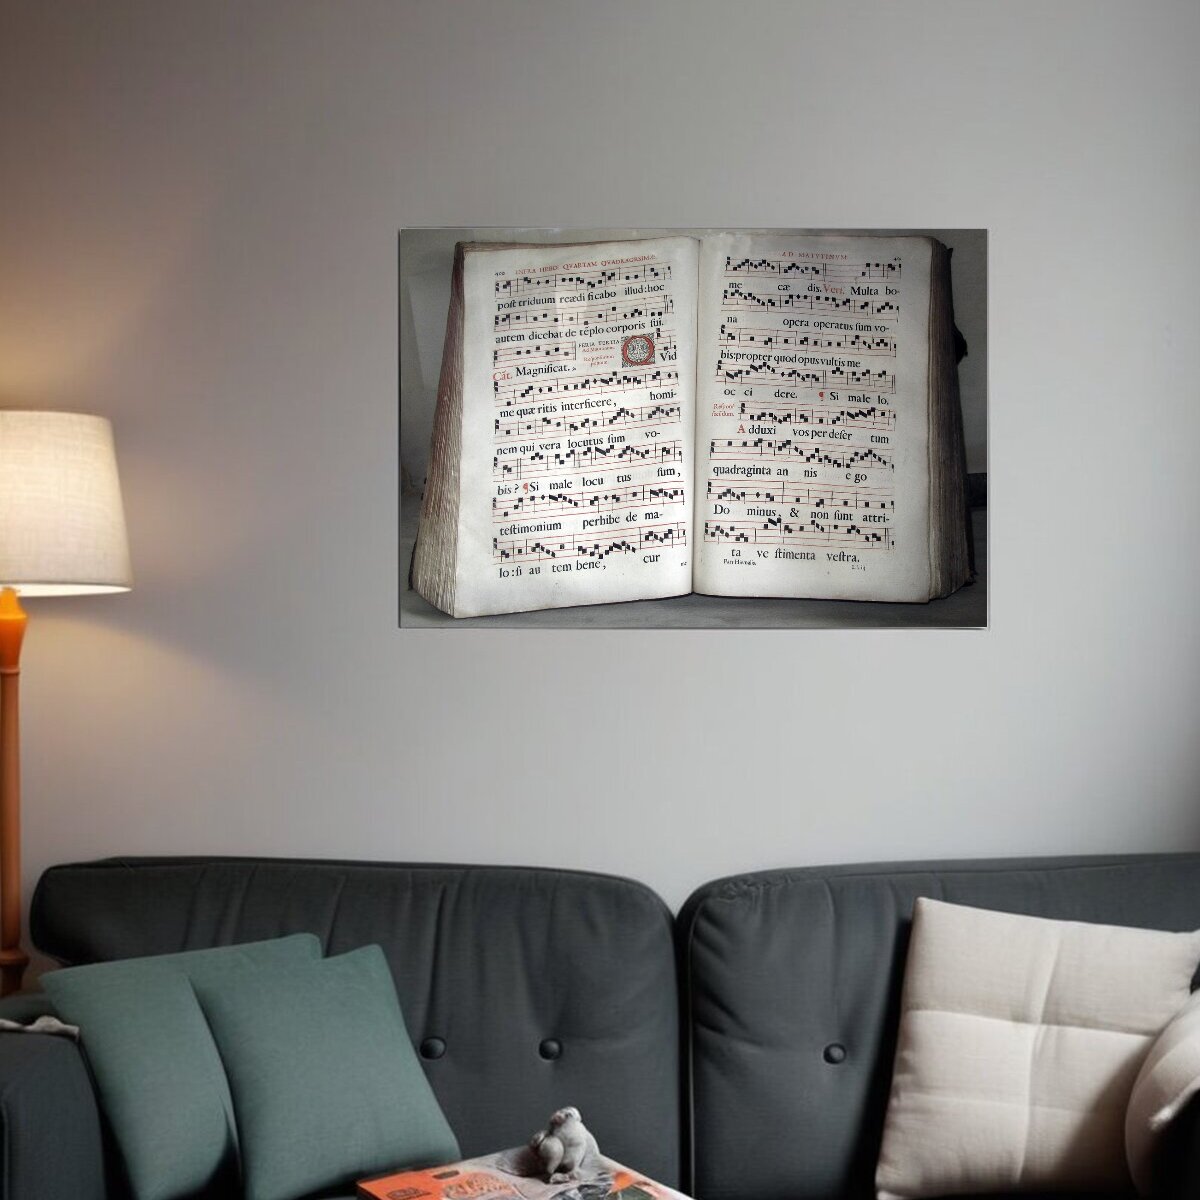 400 INFRA HEBD. QVARTAM QVADRAGESIMÆ.
poſt triduum reædificabo illud: hoc
autem dicebat de tēplo corporis ſui.
FERIA TERTIA
Ad Matutinum.
Cāt. Magnificat.
Vid
me quæ ritis interficere, homi-
nem qui vera locutus ſum vo-
bis? ¶Si male locu tus ſum,
teſtimonium perhibe de ma-
lo: ſi au tem bene, cur
me
AD MATVTINVM.
me cæ dis. Verſ. Multa bo-
na opera operatus ſum vo-
bis: propter quod opus vultis me
oc ci dere. ¶ Si male lo.
Adduxi vos per deſer tum
quadraginta an nis e go
Do minus, & non ſunt attri-
ta ve ſtimenta veſtra.
Pars Hiemalis.